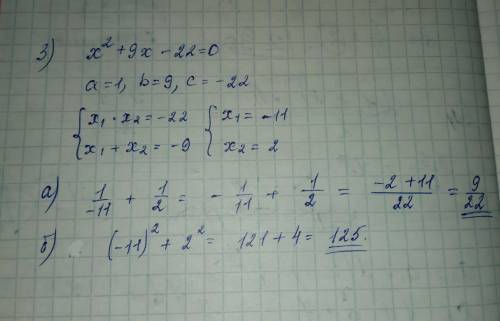 3) x² + 9x - 22 = 0
a = 1, b = 9, c = -22
{ x₁ · x₂ = -22 { x₁ = -11
x₁ + x₂ = -9 x₂ = 2
а) 1/-11 + 1/2 = - 1/11 + 1/2 = (-2 + 11)/22 = 9/22
б) (-11)² + 2² = 121 + 4 = 125.